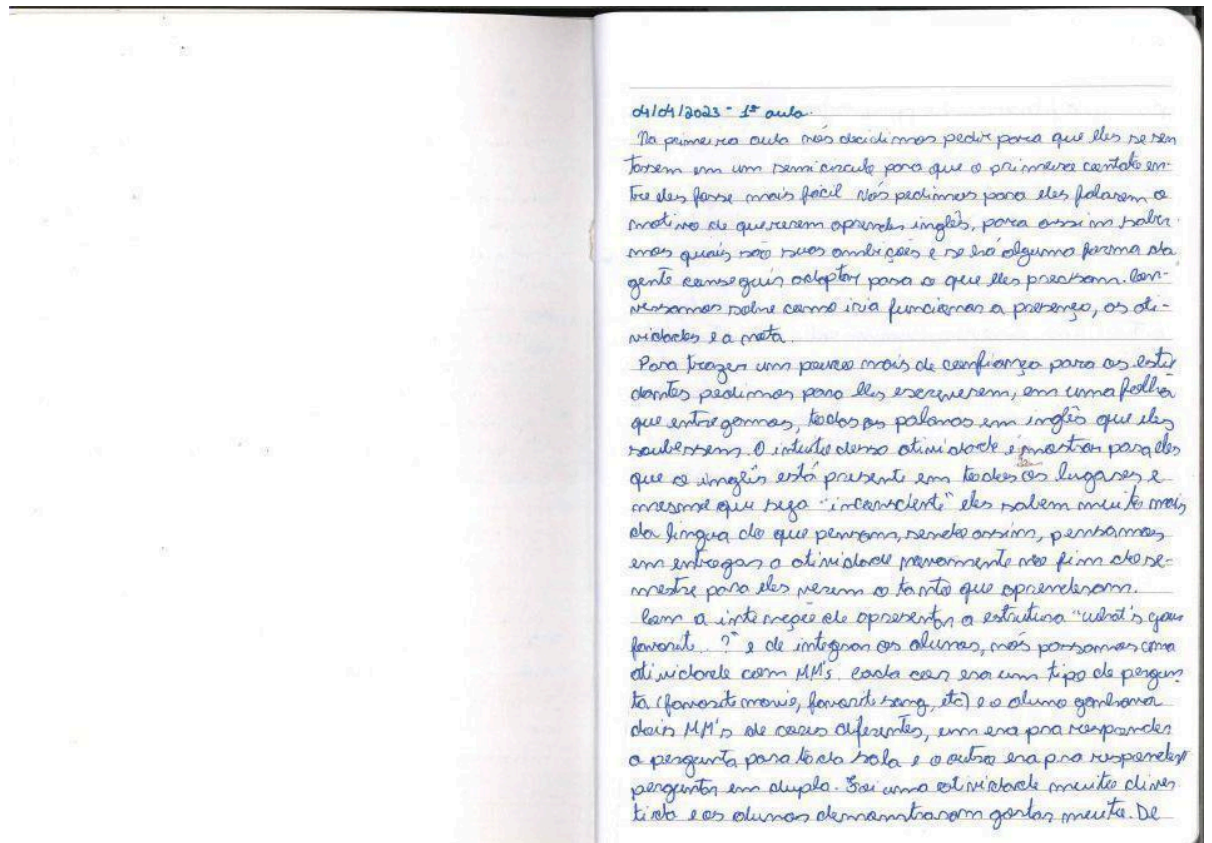 04/04/2023 - 1ª aula.
Na primeira aula nós decidimos pedir para que eles se sen
tassem em um semicírculo para que o primeiro contato en-
tre eles fosse mais fácil. Nós pedimos para eles falarem o
motivo de quererem aprender inglês, para assim saber-
mos quais são suas ambições e se há alguma forma da
gente conseguir adaptar para o que eles precisam. Con-
versamos sobre como iria funcionar a presença, as ati-
vidades e a nota.
Para trazer um pouco mais de confiança para os estu
dantes pedimos para eles escreverem, em uma folha
que entregamos, todas as palavras em inglês que eles
soubessem. O intuito dessa atividade é mostrar para eles
que o inglês está presente em todos os lugares e
mesmo que seja "inconsciente" eles sabem muito mais
da língua do que pensam, sendo assim, pensamos
em entregar a atividade novamente no fim do se-
mestre para eles verem o tanto que aprenderam.
Com a intenção de apresentar a estrutura "what's your
favorite...?" e de integrar os alunos, nós passamos uma
atividade com MM's. cada cor era um tipo de pergun
ta (favorite movie, favorite song, etc) e o aluno ganhava
dois MM's de cores diferentes, um era pra responder
a pergunta para toda sala e o outro era pra responder
perguntas em dupla. Foi uma atividade muito diver
tida e os alunos demonstraram gostar muito. De